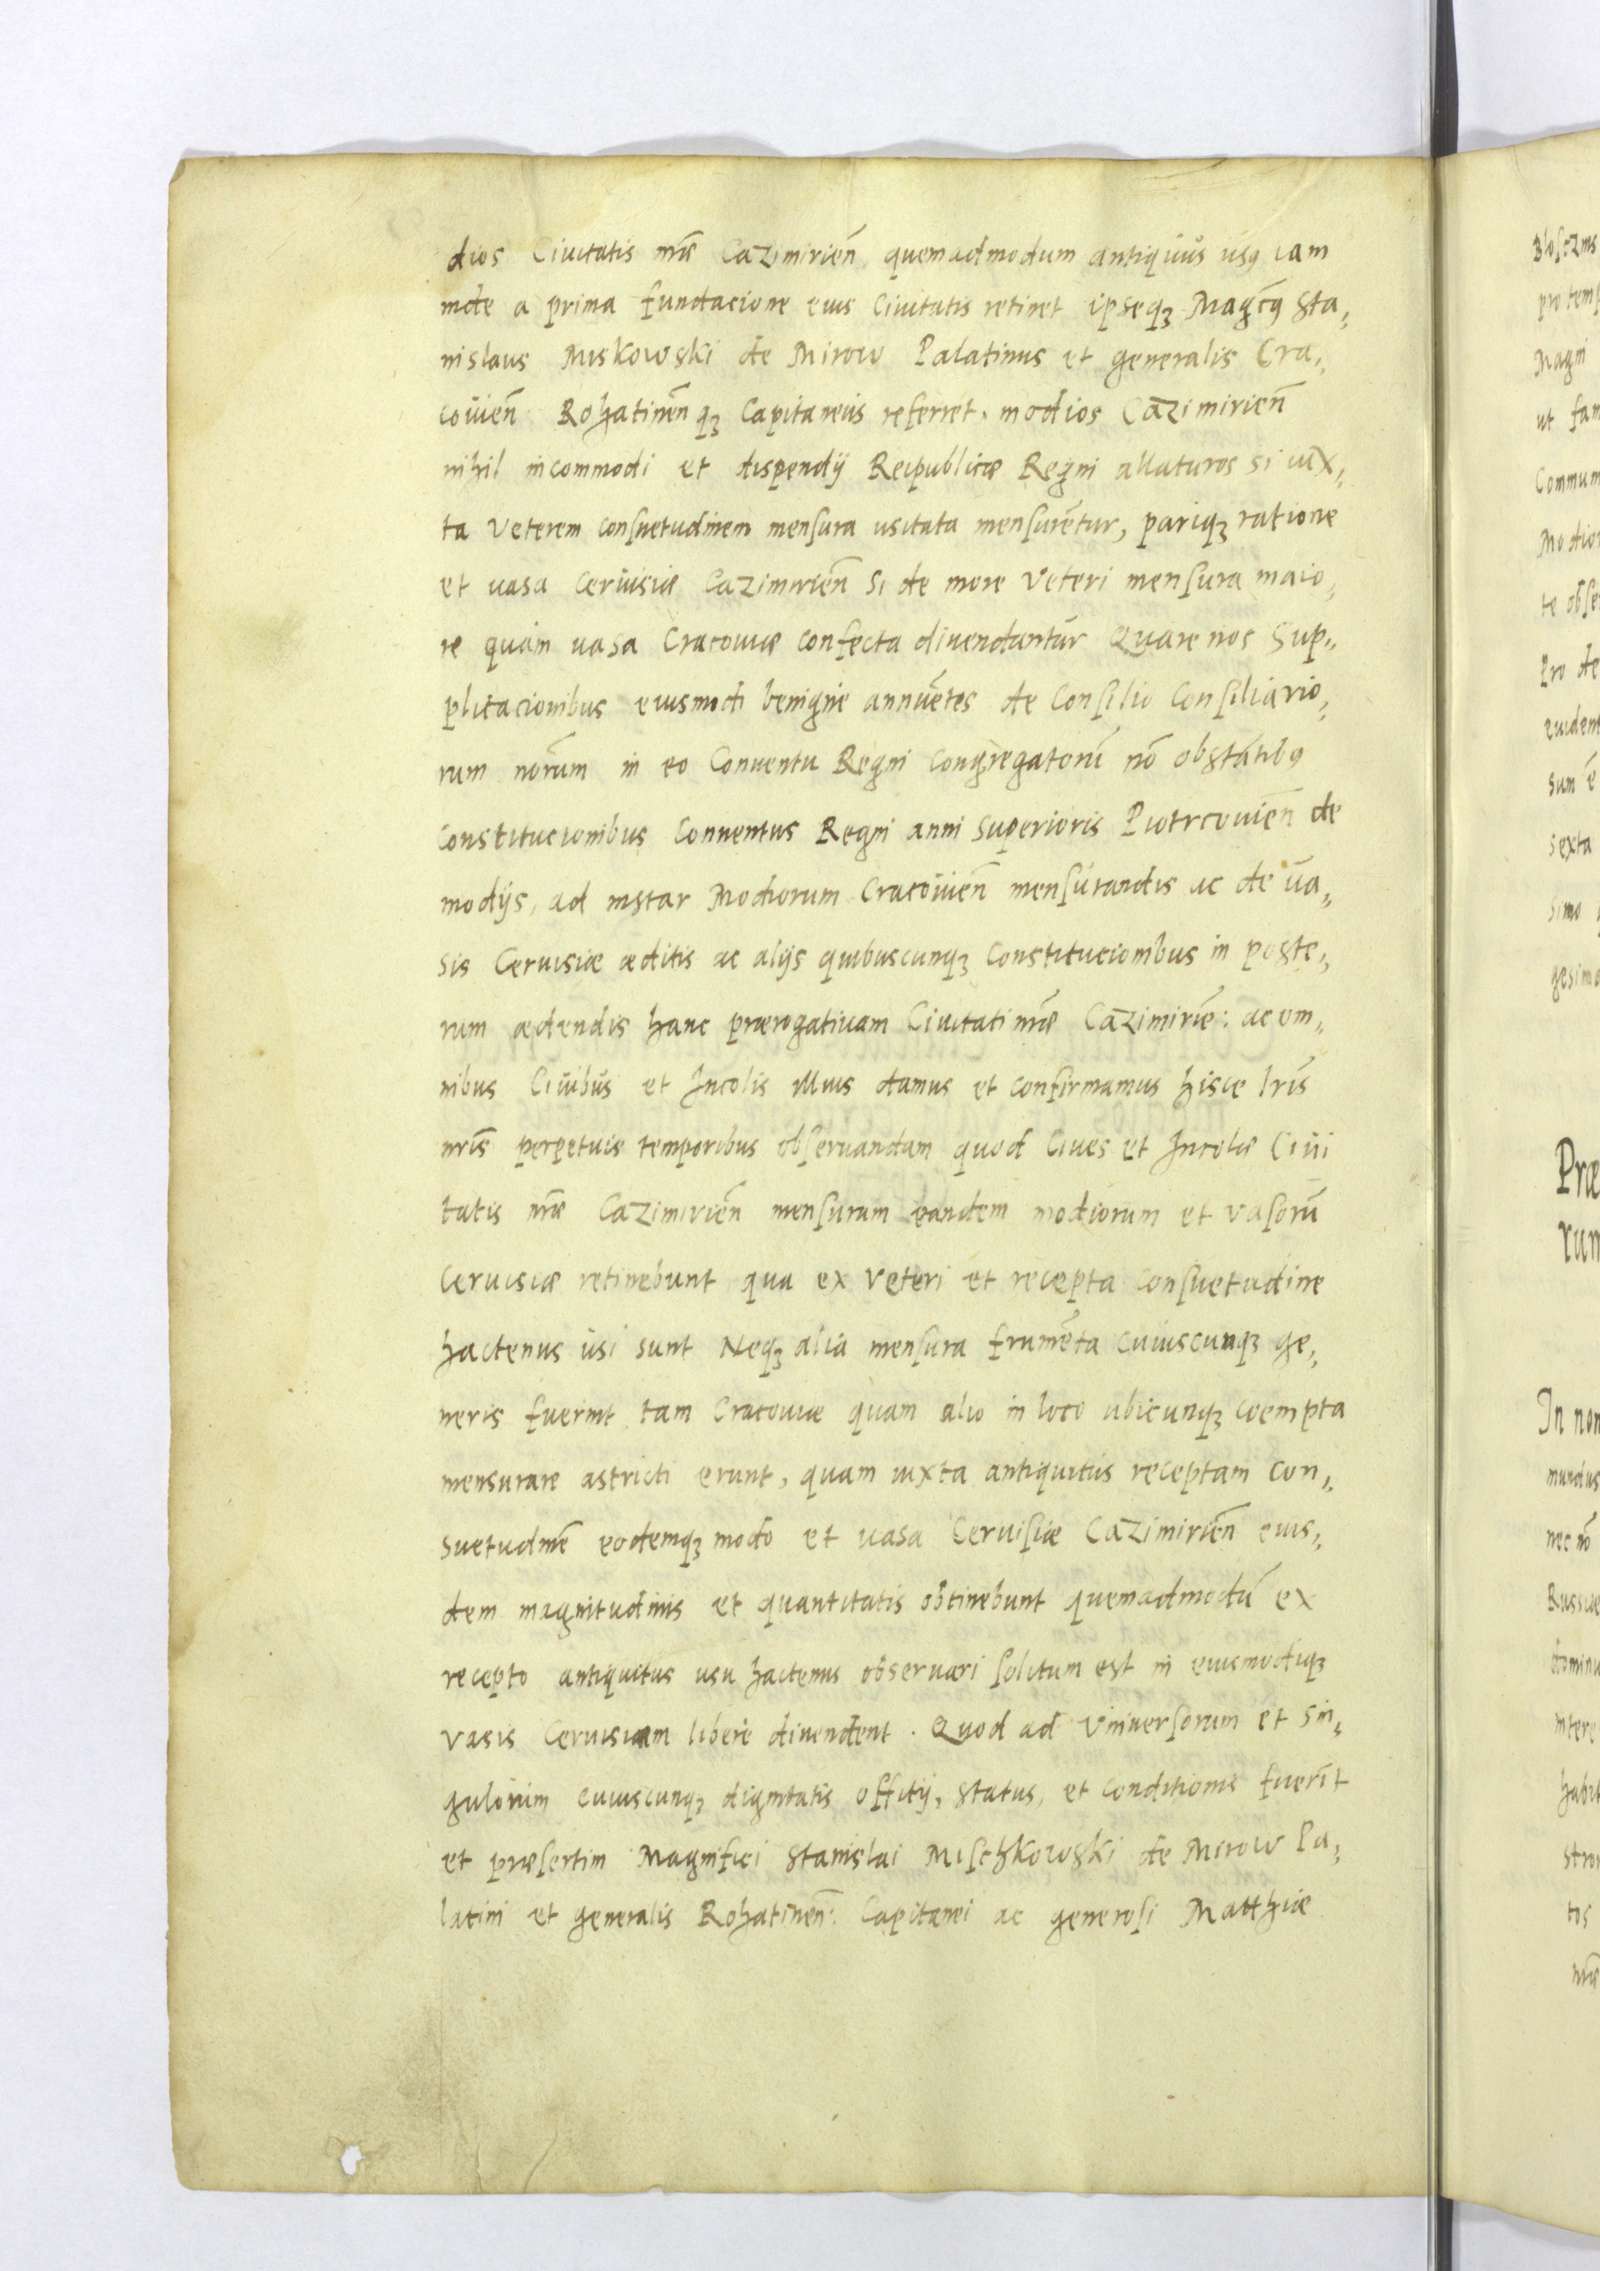 dios Ciuitatis nr̃æ Cazimirien̄ quemadmodum antiquus usq̨ iam
inde a prima fundacione eius Ciuitatis retinet ipseqꝫ Magc̃ꝯ Sta,,
nislaus Miskowski de Mirow Palatinus et generalis Cra,,
couien̄ Rohatinen̄ qꝫ Capitaneus referret. modios Cazimirien̄
nihil incommodi et dispendij Reipublicæ Regni allaturos si iux,,
ta veterem consuetudinem mensura usitata mensurẽtur, pariqꝫ ratione
et uasa Ceruisiæ Cazimirien̄ si de more veteri mensura maio,
re quàm uasa Cracouiæ confecta diuendantur Quare nos Sup,,
plicacionibus eiusmodi benigne annuẽtes de Consilio Consiliario,,
rum nõrum in eo Conuentu Regni congregatorũ nõ obstãtibꝯ
Constitucionibus Conuentus Regni anni superioris Piotrcouien̄ de
modijs, ad instar Modiorum Cracouien̄ mensurandis ac de ua,,
sis Ceruisiæ æditis ac alijs quibuscunqꝫ Constitucionibus in poste,,
rum ædendis hanc prærogatiuam Ciuitati nr̃æ Cazimiriẽ: ac om,,
nibus Ciuibus et Incolis illius damus et confirmamus hisce lr̃is
nr̃is perpetuis temporibus obseruandam quod Ciues et Incolæ Ciui
tatis nr̃æ Cazimirien̄ mensuram eandem modiorum et vasorũ
Ceruisiæ retinebunt qua ex veteri et recepta consuetudine
hactenus usi sunt Neqꝫ alia mensura frumẽta cuiuscunqꝫ ge,,
neris fuerint tam Cracouiæ quam alio in loco ubicunqꝫ coempta
mensurare astricti erunt, quam iuxta antiquitus receptam con,,
suetudinẽ eodemqꝫ modo et uasa Ceruisiæ Cazimirien̄ eius,,
dem magnitudinis et quantitatis obtinebunt quemadmodũ ex
recepto antiquitus usu hactenus obseruari solitum est in eiusmodiqꝫ
vasis Ceruisiam liberè diuendent. Quod ad Vniuersorum et sin,,
gulorum cuiuscunqꝫ dignitatis offitij, status, et conditionis fuerĩt
et præsertim Magnifici Stanislai Mischkowski de Mirow Pa,,
latini et generalis Rohatinen̄: Capitanei ac generosi Matthiæ